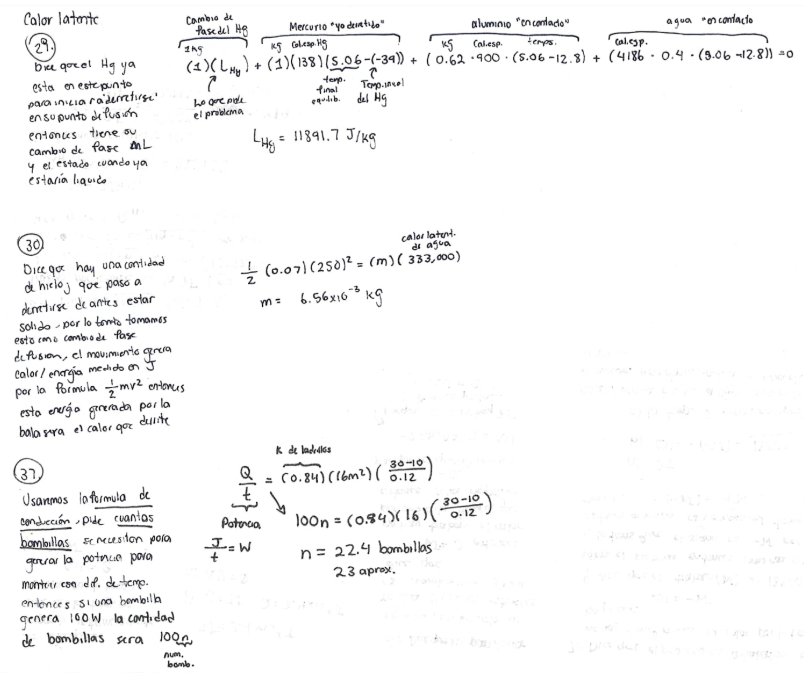 Calor latente
29.
Dice que el Hg ya
esta en este punto
para iniciar a derretirse
en su punto de fusión
entonces tiene su
cambio de fase mL
y el estado cuando ya
estaría liquido
Cambio de
fase del Hg
Mercurio "ya derretido"
aluminio "en contacto"
agua "en contacto
1kg
kg Cal.esp.Hg
kg Cal.esp. temps.
Cal.esp.
(1)(L_Hg) + (1)(138)(5.06-(-39)) + (0.62 · 900 · (5.06-12.8) + (4186 · 0.4 · (5.06-12.8)) = 0
Lo que pide
el problema
temp.
final
equilib.
Temp. inicial
del Hg
L_Hg = 11891.7 J/kg
30
Dice que hay una cantidad
de hielo, que paso a
derretirse de antes estar
solido, por lo tanto tomamos
esto como cambio de fase
de fusion, el movimiento genera
calor/energía medido en J
por la formula 1/2 mv² entonces
esta energía generada por la
bala sera el calor que derrite
calor latent.
de agua
1/2 (0.07)(250)² = (m)(333,000)
m = 6.56x10⁻³ kg
37.
Usaremos la formula de
conducción, pide cuantas
bombillas se necesitan para
generar la potencia para
mantener con dif. de temp.
entonces si una bombilla
genera 100W la cantidad
de bombillas sera 100n
num.
bomb.
K de ladrillos
Q/t = (0.84)(16m²)(30-10/0.12)
Potencia
J/t = W
100n = (0.84)(16)(30-10/0.12)
n = 22.4 bombillas
23 aprox.